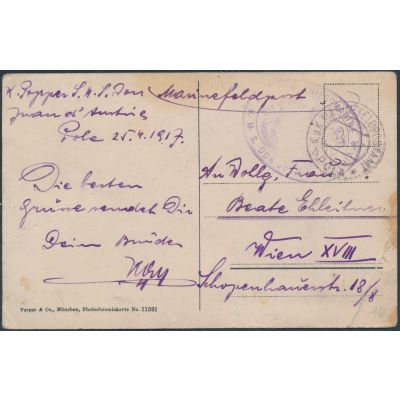 K. Popper S.M.S. Don Marinefeldpost
Juan d'Austria
Pola 25.4.1917.
Die besten
Grüße sendet Dir
Dein Bruder
An Wollg. Frau
Beate
Wien XVIII
Schopenhauerstr. 18/8
Purger & Co., München, Photochromiekarte No. 11591